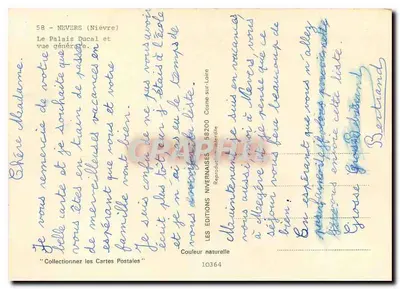 58 - NEVERS (Nièvre)
Le Palais Ducal et
vue générale.
Chère Madame.
Je vous remercie de votre
belle carte et je souhaite que
vous êtes en train de passer
de merveilleuses vacances en
espérant que vous et votre
famille vont bien.
Je suis confus de ne vous avoir
écrit plus tôt, j'étais à l'École
et je n'ai pas eu le temps de
vous
Maintenant je suis en vacances
vous aussi à Nevers vous
à Megève je pense que ce
séjour vous fera beaucoup de
bien.
En espérant que vous m'
Grosse
Bertrand
LES EDITIONS NIVERNAISES - 58200 Cosne-sur-Loire
Reproduction interdite
"Collectionnez les Cartes Postales"
Couleur naturelle
10364
CPARAMA